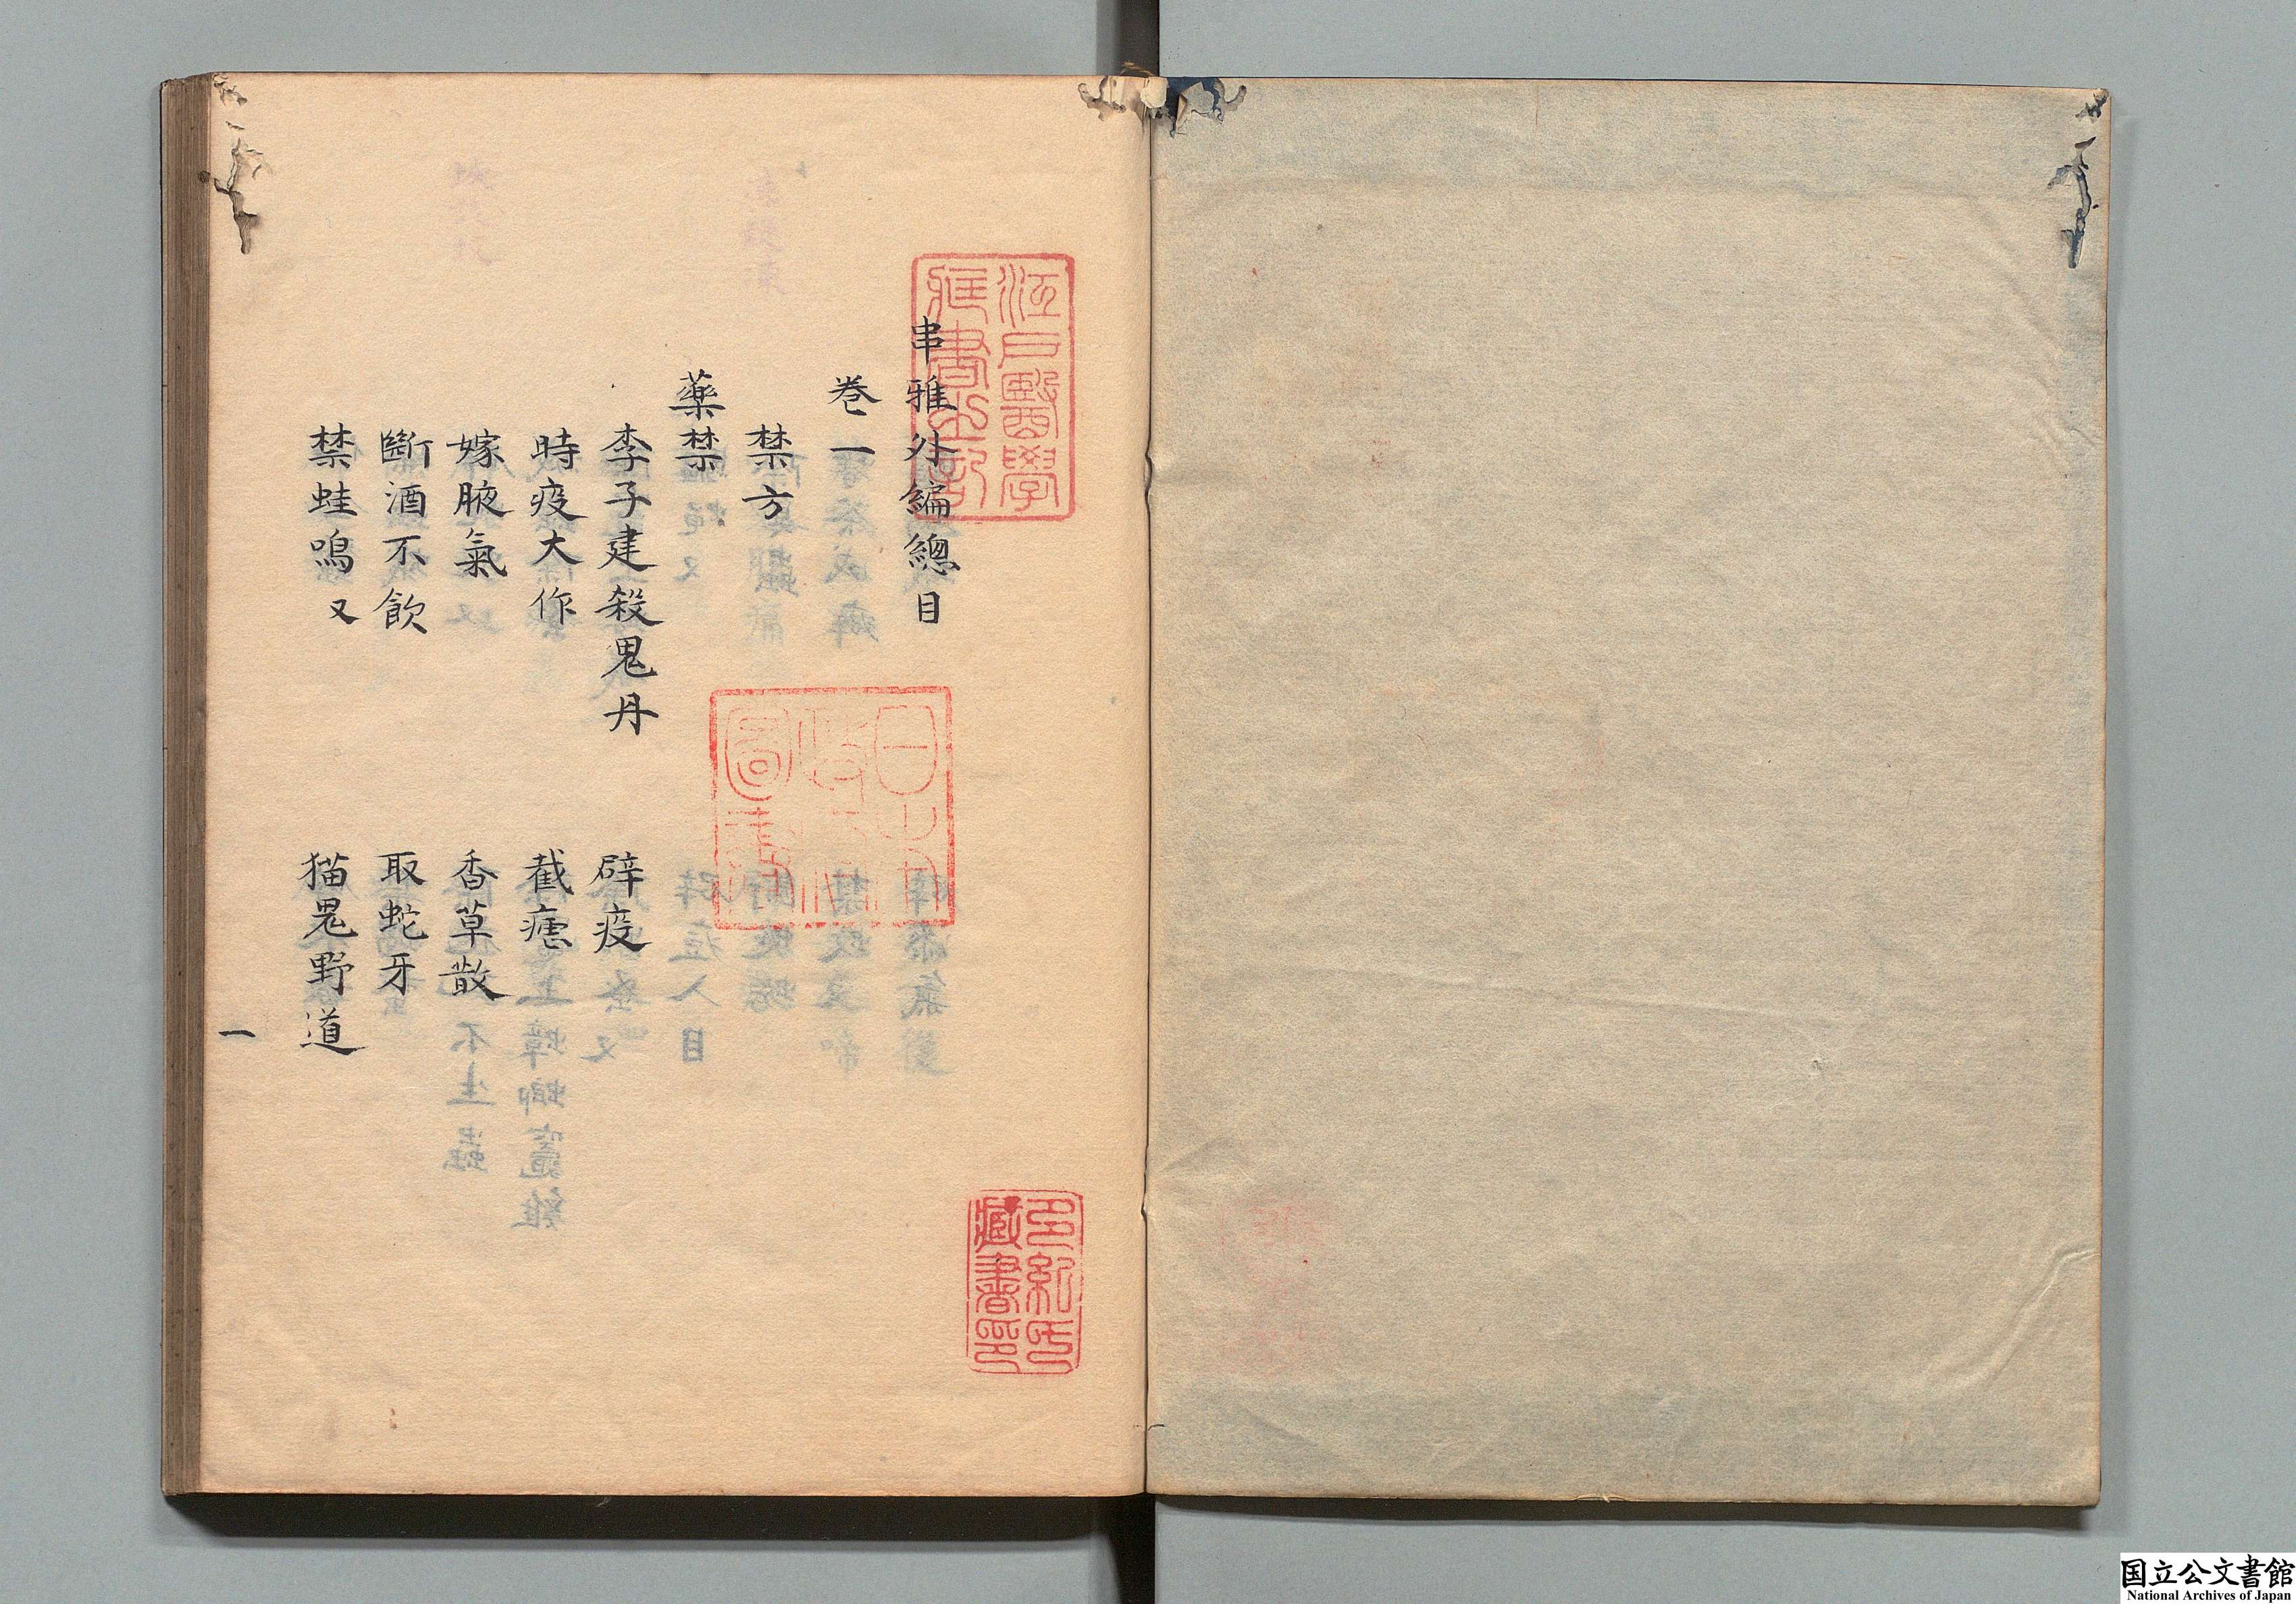 串雅外編總目
卷一
禁方
藥禁
李子建殺鬼丹
辟疫
時疫大作
截瘧
嫁腋氣
香草散
斷酒不飲
取蛇牙
禁蛙鳴又
猫鬼野道
一
江戶醫學
藏書之記
日本
政府
圖書
多紀氏
藏書印
国立公文書館
National Archives of Japan